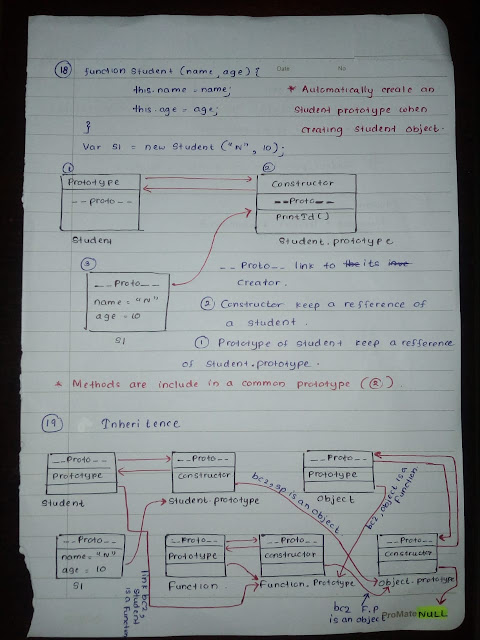 Date
No
18 function Student (name, age) {
this.name = name;
this.age = age;
}
Var S1 = new Student ("N", 10);
* Automatically create an
Student prototype when
creating student object.
1
Prototype
--proto--
Student
2
Constructor
--Proto--
PrintId()
Student.prototype
3
--Proto--
name = "N"
age = 10
S1
--Proto-- link to the its inve
creator.
2 Constructor keep a refference of
a student.
1 Prototype of student keep a refference
of student.prototype.
* Methods are include in a common prototype (2)
19 Inheritence
--Proto--
Prototype
Student
--Proto--
Constructor
Student.prototype
--Proto--
Prototype
Object
bcz, sp is an object.
bcz, object is a
Function.
--Proto--
name = "N"
age = 10
S1
link bcz, s
student
is a function
--Proto--
Prototype
Function
--Proto--
constructor
Function.Prototype
--Proto--
constructor
Object.prototype
bcz F.P
is an object
ProMate NULL